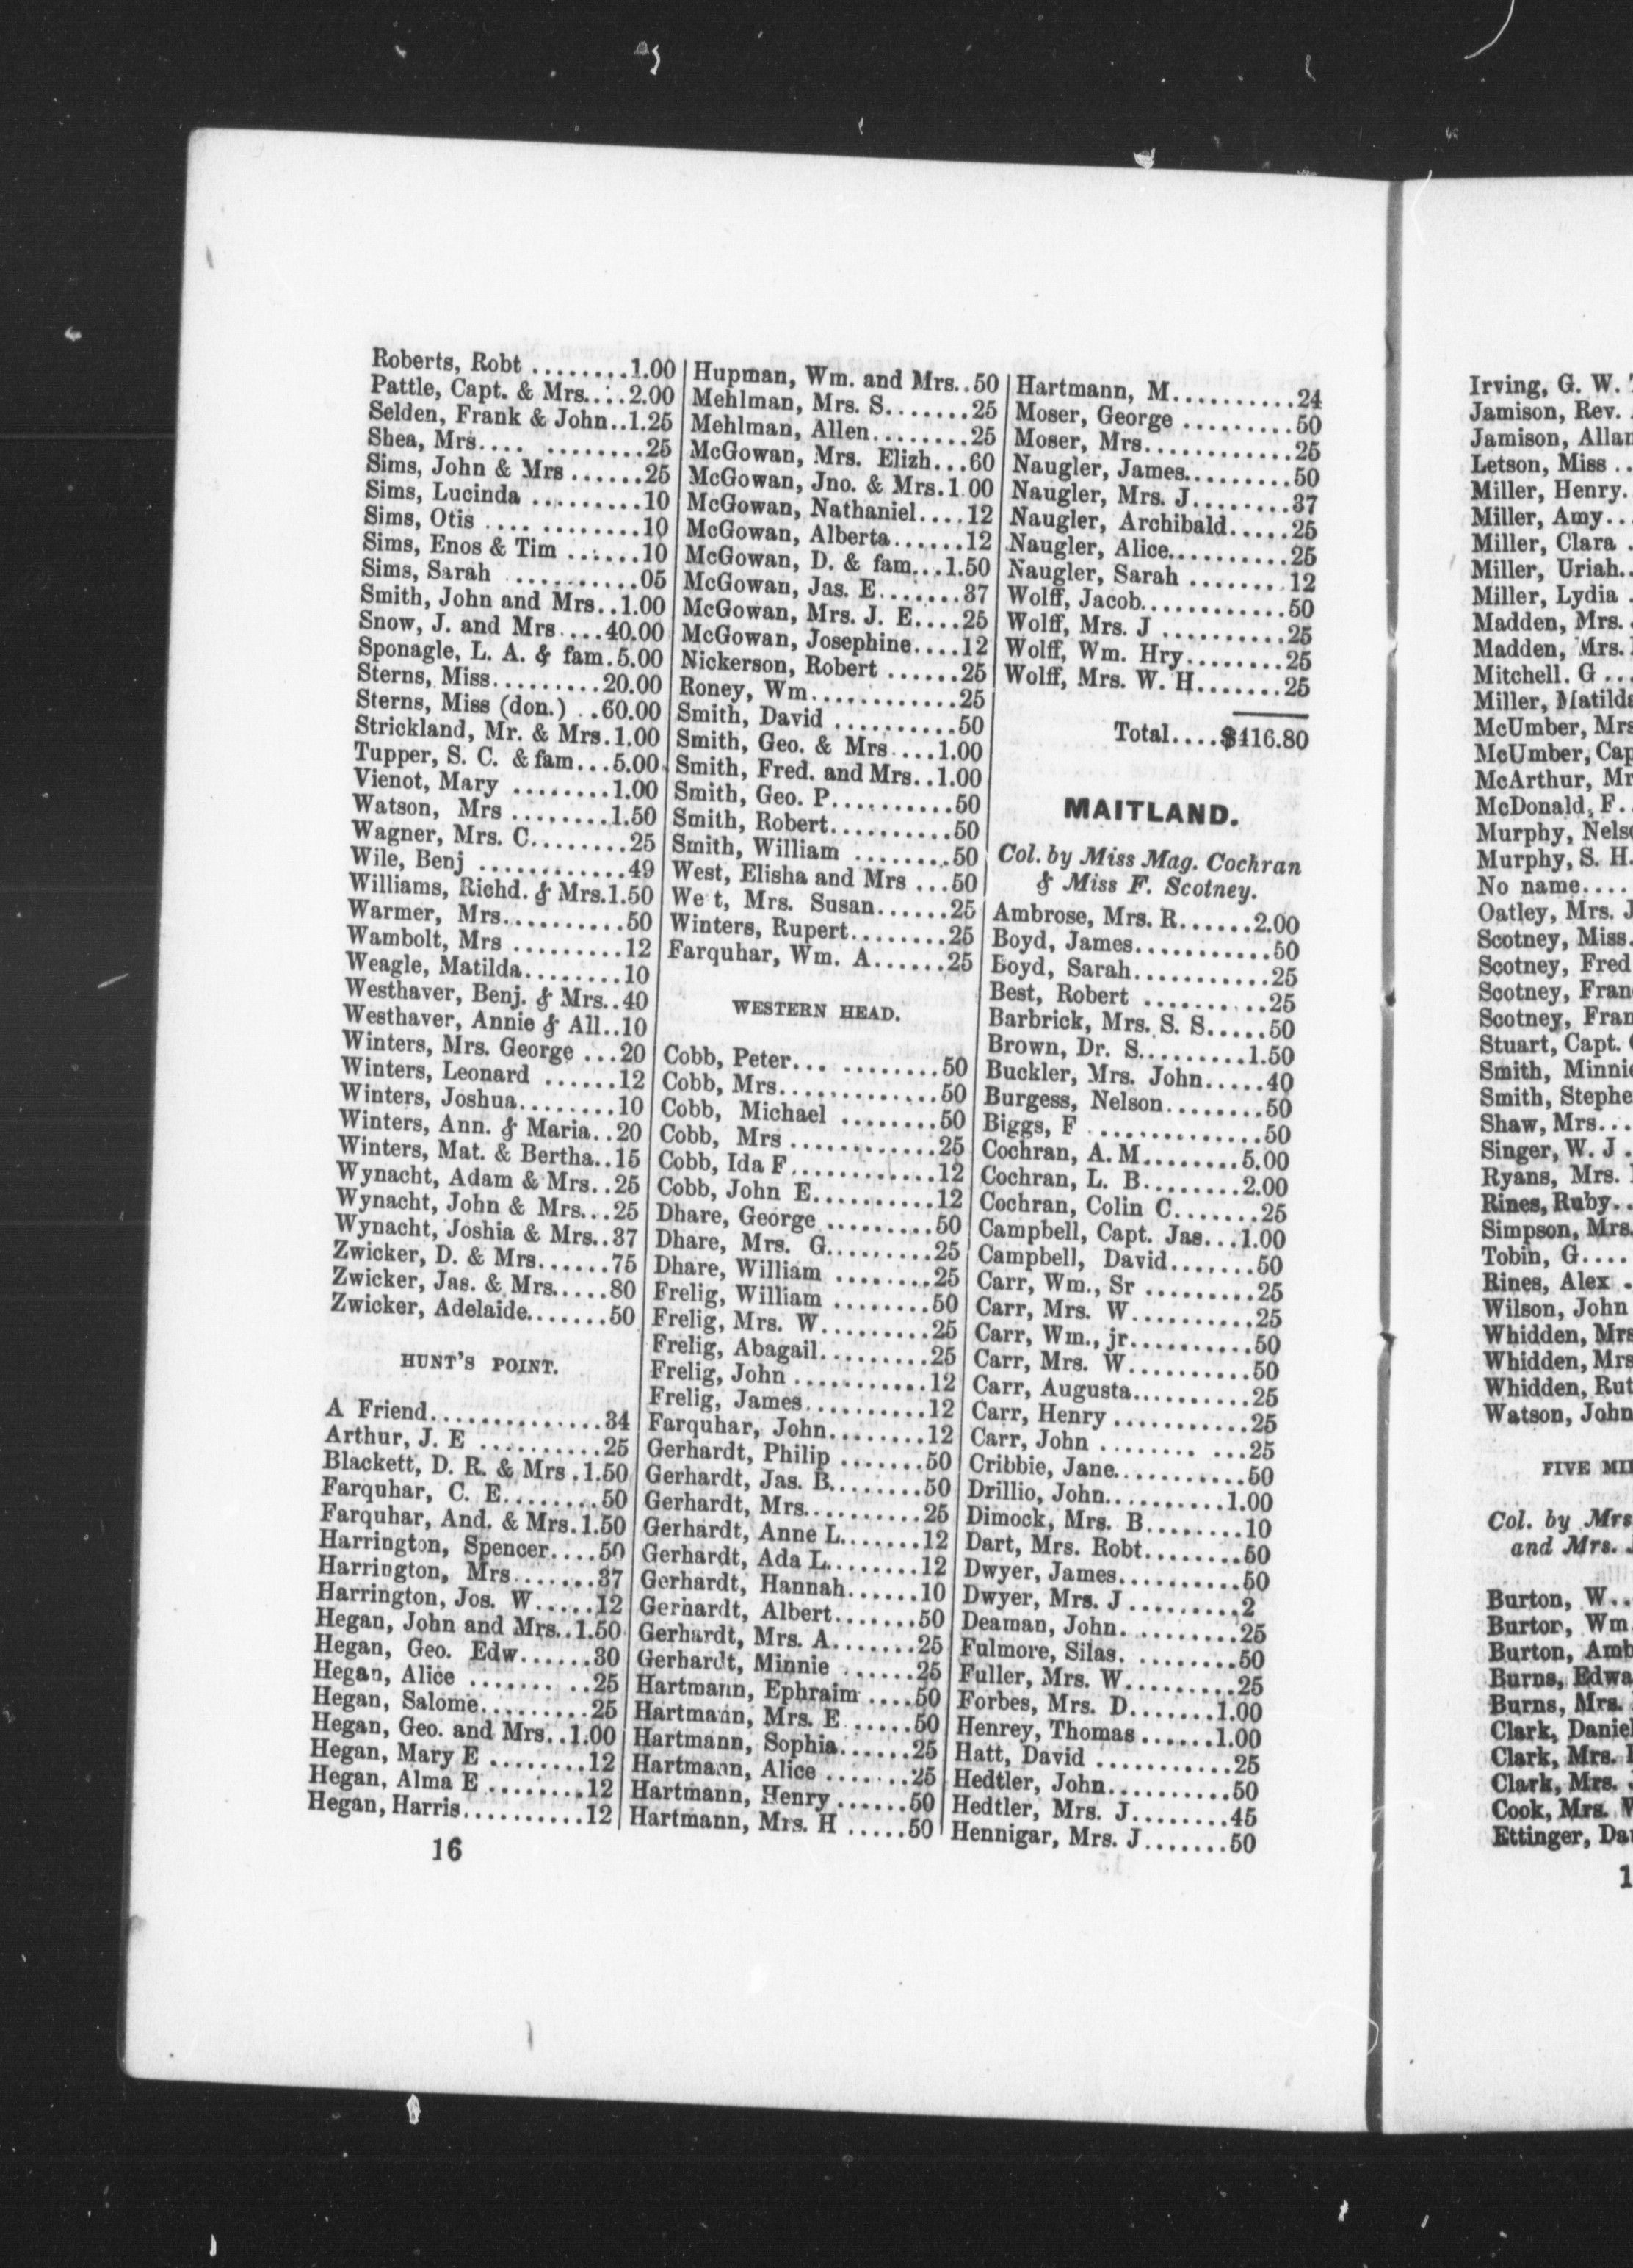 Roberts, Robt ........1.00
Pattle, Capt. & Mrs....2.00
Selden, Frank & John..1.25
Shea, Mrs.... ........25
Sims, John & Mrs ......25
Sims, Lucinda .........10
Sims, Otis .... ........10
Sims, Enos & Tim ......10
Sims, Sarah ...........05
Smith, John and Mrs..1.00
Snow, J. and Mrs....40.00
Sponagle, L. A. & fam.5.00
Sterns, Miss.........20.00
Sterns, Miss (don.) ..60.00
Strickland, Mr. & Mrs.1.00
Tupper, S. C. & fam...5.00
Vienot, Mary ........1.00
Watson, Mrs ........1.50
Wagner, Mrs. C........25
Wile, Benj ............49
Williams, Richd. & Mrs.1.50
Warmer, Mrs..........50
Wambolt, Mrs ........12
Weagle, Matilda........10
Westhaver, Benj. & Mrs..40
Westhaver, Annie & All..10
Winters, Mrs. George ...20
Winters, Leonard ......12
Winters, Joshua........10
Winters, Ann. & Maria..20
Winters, Mat. & Bertha..15
Wynacht, Adam & Mrs..25
Wynacht, John & Mrs...25
Wynacht, Joshia & Mrs..37
Zwicker, D. & Mrs......75
Zwicker, Jas. & Mrs.....80
Zwicker, Adelaide.......50
HUNT'S POINT.
A Friend..............34
Arthur, J. E ..........25
Blackett, D. R. & Mrs .1.50
Farquhar, C. E........50
Farquhar, And. & Mrs.1.50
Harrington, Spencer....50
Harrington, Mrs.......37
Harrington, Jos. W.....12
Hegan, John and Mrs..1.50
Hegan, Geo. Edw......30
Hegan, Alice ....... ..25
Hegan, Salome.........25
Hegan, Geo. and Mrs..1.00
Hegan, Mary E ........12
Hegan, Alma E ........12
Hegan, Harris..........12
16
Hupman, Wm. and Mrs..50
Mehlman, Mrs. S.......25
Mehlman, Allen........25
McGowan, Mrs. Elizh...60
McGowan, Jno. & Mrs.1.00
McGowan, Nathaniel....12
McGowan, Alberta......12
McGowan, D. & fam...1.50
McGowan, Jas. E.......37
McGowan, Mrs. J. E....25
McGowan, Josephine....12
Nickerson, Robert ......25
Roney, Wm............25
Smith, David ..........50
Smith, Geo. & Mrs....1.00
Smith, Fred. and Mrs..1.00
Smith, Geo. P..........50
Smith, Robert..........50
Smith, William ........50
West, Elisha and Mrs ...50
We t, Mrs. Susan......25
Winters, Rupert........25
Farquhar, Wm. A......25
WESTERN HEAD.
Cobb, Peter... ........50
Cobb, Mrs.............50
Cobb, Michael ........50
Cobb, Mrs ............25
Cobb, Ida F............12
Cobb, John E..........12
Dhare, George .........50
Dhare, Mrs. G.........25
Dhare, William ........25
Frelig, William ........50
Frelig, Mrs. W.........25
Frelig, Abagail.........25
Frelig, John ...........12
Frelig, James..........12
Farquhar, John........12
Gerhardt, Philip .......50
Gerhardt, Jas. B........50
Gerhardt, Mrs..........25
Gerhardt, Anne L.......12
Gerhardt, Ada L........12
Gerhardt, Hannah......10
Gerhardt, Albert.......50
Gerhardt, Mrs. A.......25
Gerhardt, Minnie ......25
Hartmann, Ephraim ....50
Hartmann, Mrs. E .....50
Hartmann, Sophia......25
Hartmann, Alice .......25
Hartmann, Henry ......50
Hartmann, Mrs. H .....50
Hartmann, M..........24
Moser, George .........50
Moser, Mrs............25
Naugler, James.........50
Naugler, Mrs. J........37
Naugler, Archibald.....25
Naugler, Alice..........25
Naugler, Sarah ........12
Wolff, Jacob............50
Wolff, Mrs. J ..........25
Wolff, Wm. Hry........25
Wolff, Mrs. W. H.......25
Total....$416.80
MAITLAND.
Col. by Miss Mag. Cochran
& Miss F. Scotney.
Ambrose, Mrs. R......2.00
Boyd, James...........50
Boyd, Sarah...........25
Best, Robert ..........25
Barbrick, Mrs. S. S.....50
Brown, Dr. S.........1.50
Buckler, Mrs. John.....40
Burgess, Nelson........50
Biggs, F ..............50
Cochran, A. M........5.00
Cochran, L. B........2.00
Cochran, Colin C.......25
Campbell, Capt. Jas...1.00
Campbell, David.......50
Carr, Wm., Sr .........25
Carr, Mrs. W..........25
Carr, Wm., jr..........50
Carr, Mrs. W..........50
Carr, Augusta..........25
Carr, Henry ...........25
Carr, John ........ ...25
Cribbie, Jane...........50
Drillio, John..........1.00
Dimock, Mrs. B........10
Dart, Mrs. Robt........50
Dwyer, James..........50
Dwyer, Mrs. J .........2
Deaman, John..........25
Fulmore, Silas. ........50
Fuller, Mrs. W.........25
Forbes, Mrs. D.......1.00
Henrey, Thomas ......1.00
Hatt, David ...........25
Hedtler, John..........50
Hedtler, Mrs. J........45
Hennigar, Mrs. J.......50
Irving, G. W.
Jamison, Rev.
Jamison, Allan
Letson, Miss ..
Miller, Henry.
Miller, Amy...
Miller, Clara .
Miller, Uriah..
Miller, Lydia .
Madden, Mrs.
Madden, Mrs.
Mitchell. G ...
Miller, Matilda
McUmber, Mrs
McUmber, Cap
McArthur, Mr
McDonald, F..
Murphy, Nelso
Murphy, S. H.
No name....
Oatley, Mrs. J
Scotney, Miss.
Scotney, Fred
Scotney, Fran
Scotney, Fran
Stuart, Capt.
Smith, Minnie
Smith, Stephe
Shaw, Mrs...
Singer, W. J .
Ryans, Mrs.
Rines, Ruby..
Simpson, Mrs.
Tobin, G....
Rines, Alex .
Wilson, John
Whidden, Mrs
Whidden, Mrs
Whidden, Rut
Watson, John
FIVE MI
Col. by Mrs
and Mrs.
Burton, W..
Burtor, Wm
Burton, Amb
Burns, Edwa
Burns, Mrs.
Clark, Daniel
Clark, Mrs.
Clark, Mrs.
Cook, Mrs. W
Ettinger, Da
1